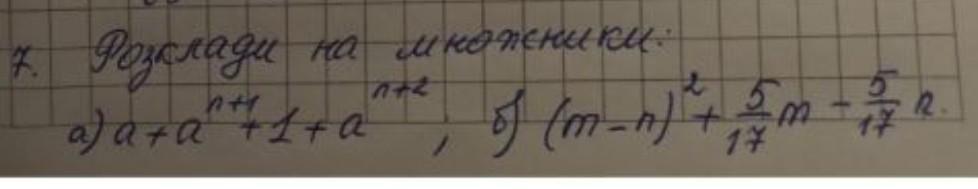 7. Розклади на множники:
а) a + a^{n+1} + 1 + a^{n+2}, б) (m - n)^2 + \frac{5}{17}m - \frac{5}{17}n.